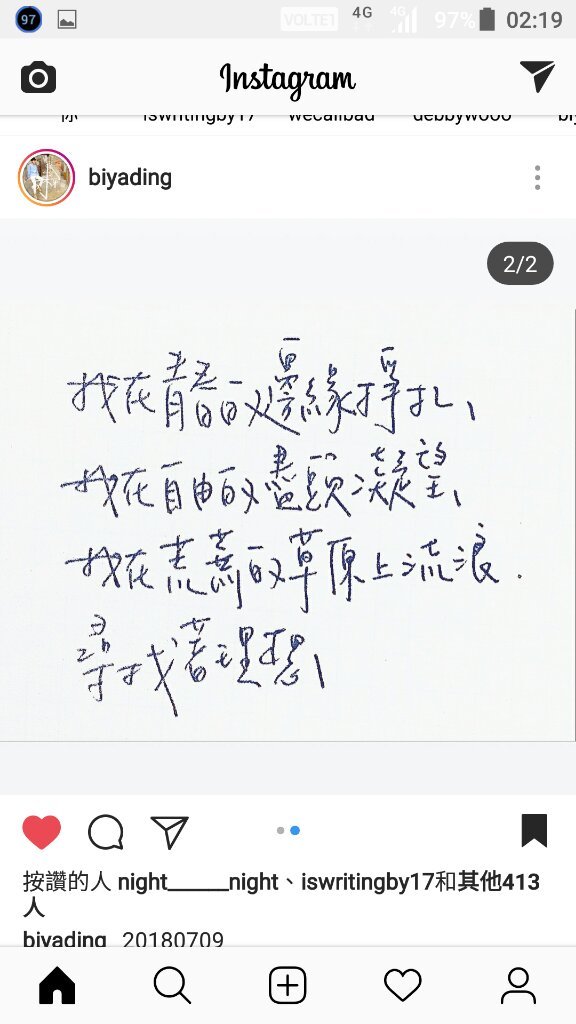 97 VOLTE1 4G 4G 97% 02:19
Instagram
你 iswritingby17 wecallbad debbywooo
biyading
2/2
我在青春的邊緣掙扎、
我在自由的盡頭凝望、
我在荒蕪的草原上流浪.
尋找著理想、
按讚的人 night______night、iswritingby17和其他413
人
biyading 20180709